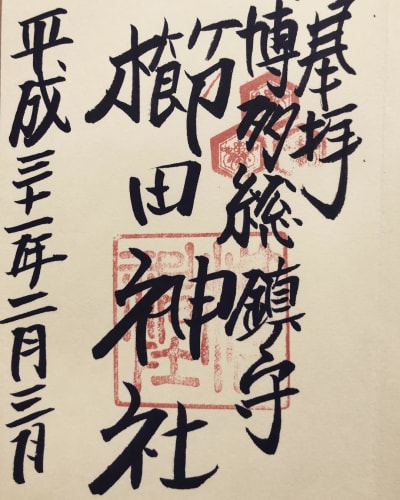 奉拝
博多総鎮守
櫛田神社
平成三十一年二月三日